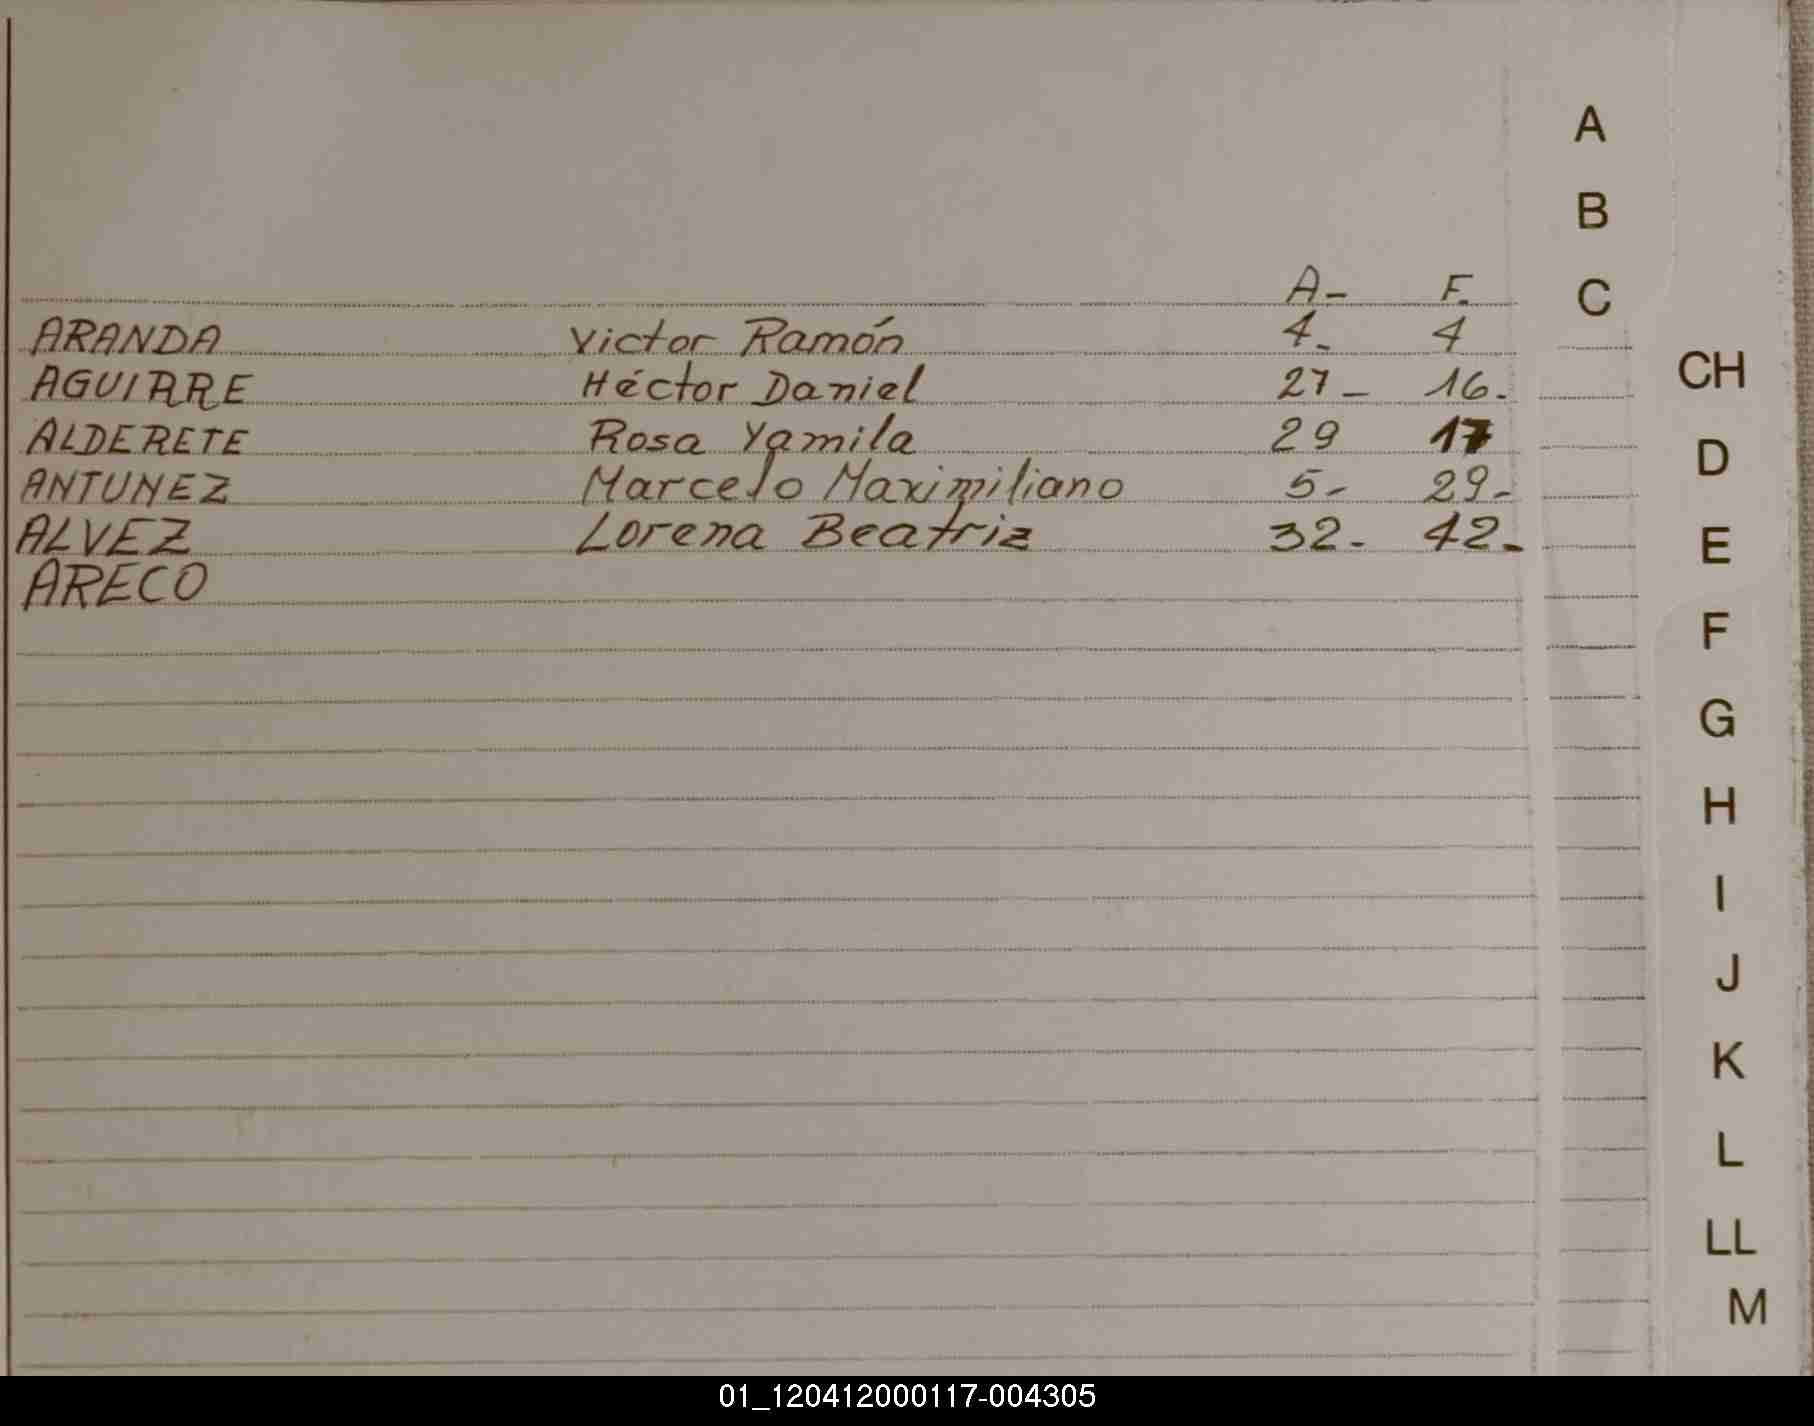 A
B
A- F.
C
ARANDA Victor Ramón 4- 4
CH
AGUIRRE Héctor Daniel 27- 16-
ALDERETE Rosa Yamila 29 17
D
ANTUNEZ Marcelo Maximiliano 5- 29-
ALVEZ Lorena Beatriz 32- 42-
E
ARECO
F
G
H
I
J
K
L
LL
M
01_120412000117-004305